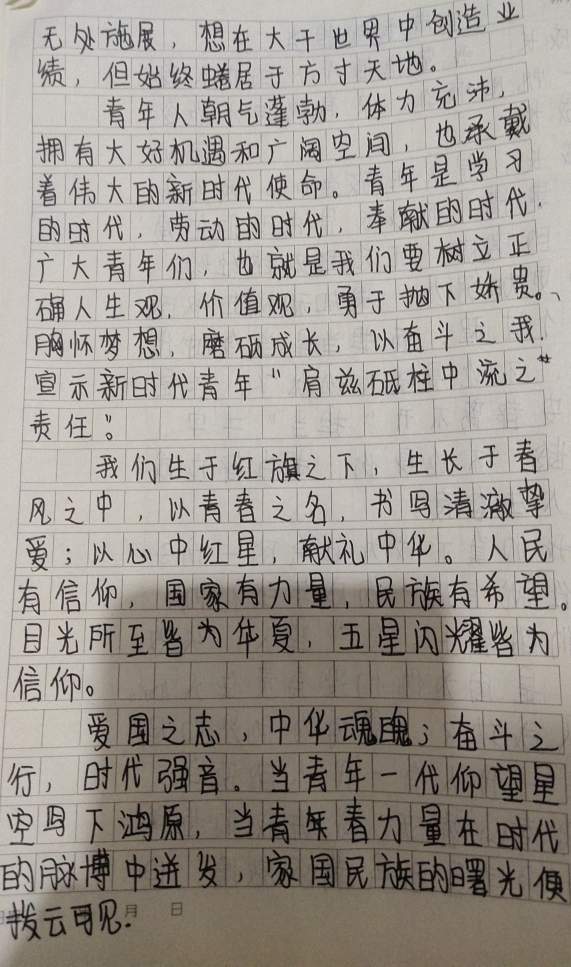 无处施展，想在大干世界中创造业
绩，但始终蜷居于方寸天地。
青年人朝气蓬勃，体力充沛，
拥有大好机遇和广阔空间，也承载
着伟大的新时代使命。青年是学习
的时代，劳动的时代，奉献的时代，
广大青年们，也就是我们要树立正
确人生观，价值观，勇于抛下娇贵。、
胸怀梦想，磨砺成长，以奋斗之我，
宣示新时代青年“肩兹砥柱中流之
责任”。
我们生于红旗之下，生长于春
风之中，以青春之名，书写清澈挚
爱；以心中红星，献礼中华。人民
有信仰，国家有力量，民族有希望。
目光所至皆为华夏，五星闪耀皆为
信仰。
爱国之志，中华魂魄；奋斗之
行，时代强音。当青年一代仰望星
空写下鸿原，当青年春力量在时代
的脉博中迸发，家国民族的曙光便
拨云可见.
月 日